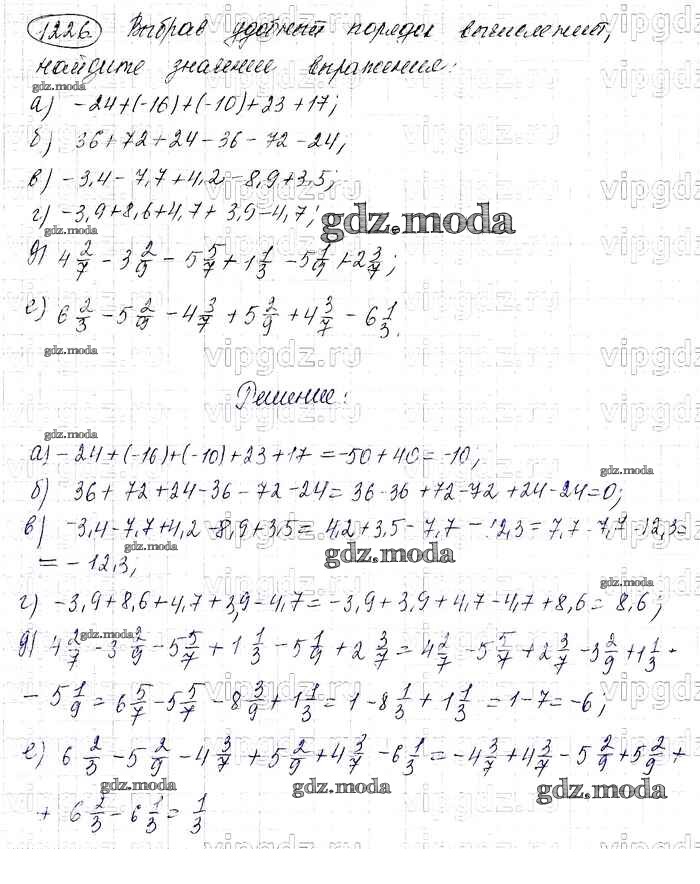 1226 Выбрав удобный порядок вычислений,
найдите значение выражения:
gdz.moda
а) -24+(-16)+(-10)+23+17;
б) 36+72+24-36-72-24;
в) -3,4-7,7+4,2-8,9+3,5;
г) -3,9+8,6+4,7+3,9-4,7;
gdz.moda
д) 4 2/7 - 3 2/9 - 5 5/7 + 1 1/3 - 5 1/9 + 2 3/7;
е) 6 2/3 - 5 2/9 - 4 3/7 + 5 2/9 + 4 3/7 - 6 1/3.
gdz.moda
Решение:
gdz.moda
а) -24+(-16)+(-10)+23+17=-50+40=-10;
б) 36+72+24-36-72-24=36-36+72-72+24-24=0;
в) -3,4-7,7+4,2-8,9+3,5=4,2+3,5-7,7-12,3=7,7-7,7-12,3=
=-12,3;
gdz.moda
г) -3,9+8,6+4,7+3,9-4,7=-3,9+3,9+4,7-4,7+8,6=8,6;
д) 4 2/7 - 3 2/9 - 5 5/7 + 1 1/3 - 5 1/9 + 2 3/7 = 4 2/7 - 5 5/7 + 2 3/7 - 3 2/9 + 1 1/3 -
- 5 1/9 = 6 5/7 - 5 5/7 - 8 3/9 + 1 1/3 = 1 - 8 1/3 + 1 1/3 = 1-7=-6;
е) 6 2/3 - 5 2/9 - 4 3/7 + 5 2/9 + 4 3/7 - 6 1/3 = -4 3/7 + 4 3/7 - 5 2/9 + 5 2/9 +
gdz.moda
+ 6 2/3 - 6 1/3 = 1/3
vipgdz.ru